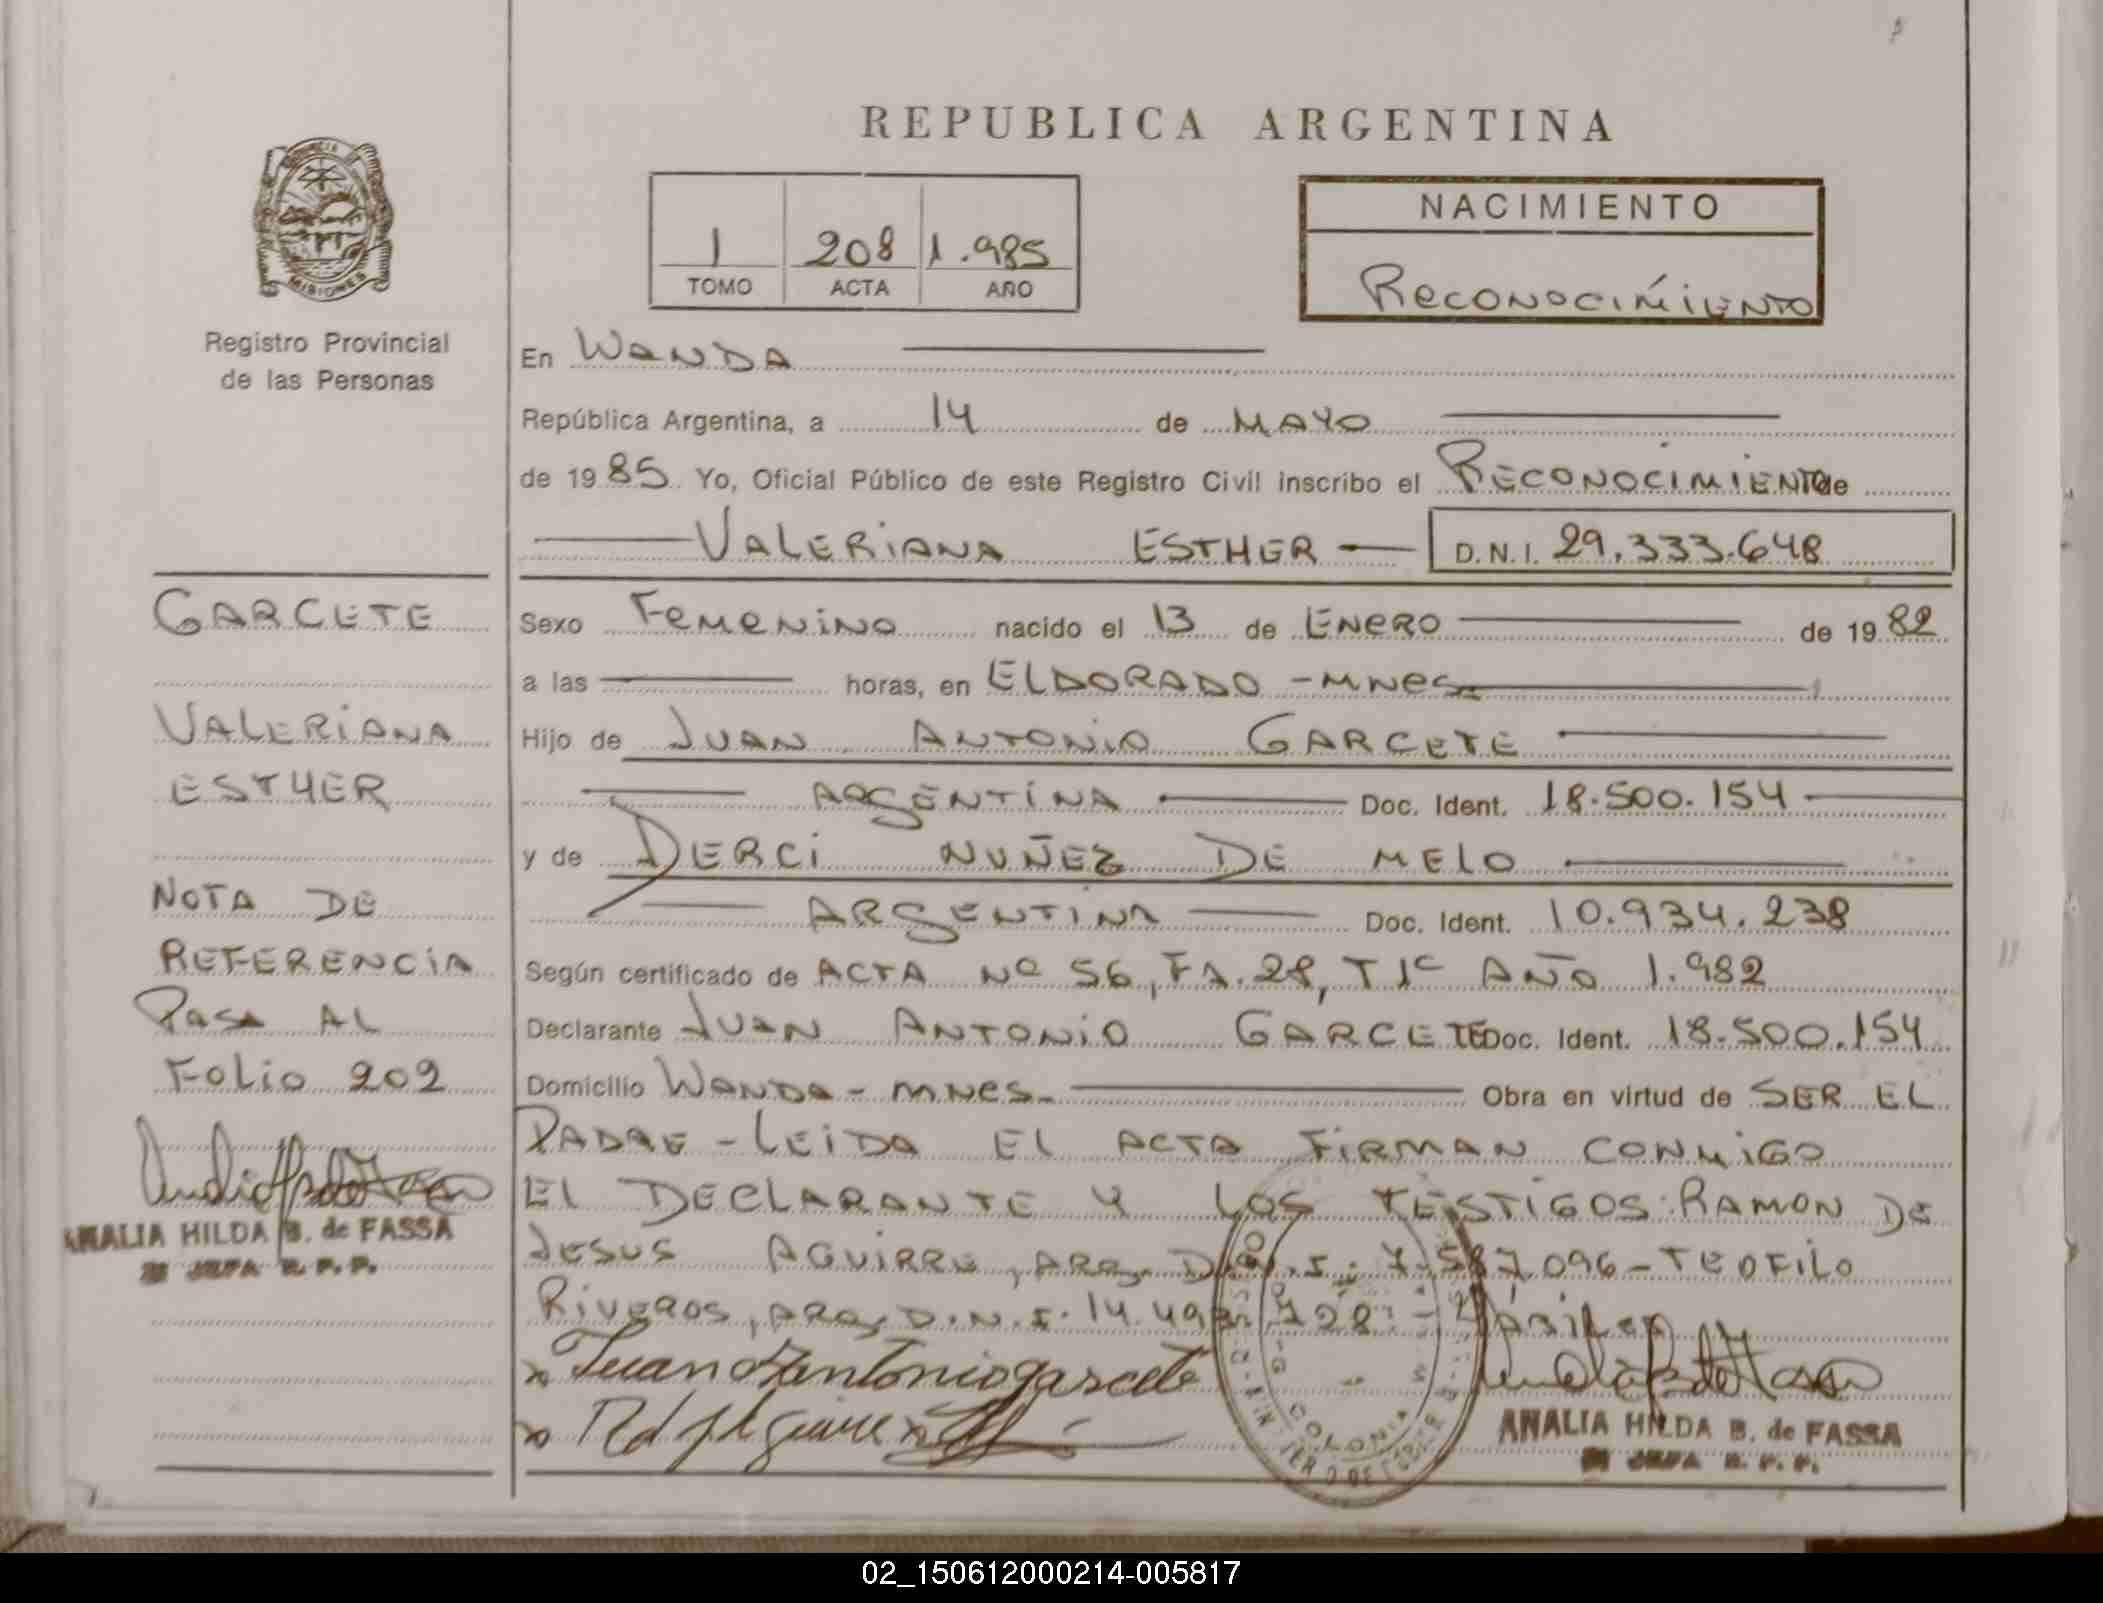 REPUBLICA ARGENTINA
1 208 1.985
TOMO ACTA AÑO
NACIMIENTO
RECONOCIMIENTO
MISIONES
Registro Provincial
de las Personas
En WANDA
República Argentina, a 14 de MAYO
de 1985 Yo, Oficial Público de este Registro Civil inscribo el RECONOCIMIENTO de
VALERIANA ESTHER D.N.I. 29.333.648
Sexo FEMENINO nacido el 13 de ENERO de 1982
a las horas, en ELDORADO - MNES
Hijo de JUAN ANTONIO GARCETE
ARGENTINA Doc. Ident. 18.500.154
y de DERCI NUÑEZ DE MELO
ARGENTINA Doc. Ident. 10.934.238
Según certificado de ACTA Nº 56, Fº. 28, T 1º AÑO 1.982
Declarante JUAN ANTONIO GARCETE Doc. Ident. 18.500.154
Domicilio WANDA - MNES. Obra en virtud de SER EL
PADRE - LEIDA EL ACTA FIRMAN CONMIGO
EL DECLARANTE Y LOS TESTIGOS: RAMON DE
JESUS AGUIRRE, ARG. D.N.I. 7.587.096 - TEOFILO
RIVEROS, ARG, D.N.I. 14.493.128 -
x Juan Antonio garcete
x Rd J Aguirre x
COLONIA
ANALIA HILDA B. de FASSA
JEFA R. P. P.
GARCETE
VALERIANA
ESTHER
NOTA DE
REFERENCIA
PASA AL
FOLIO 202
ANALIA HILDA B. de FASSA
JEFA R. P. P.
02_150612000214-005817